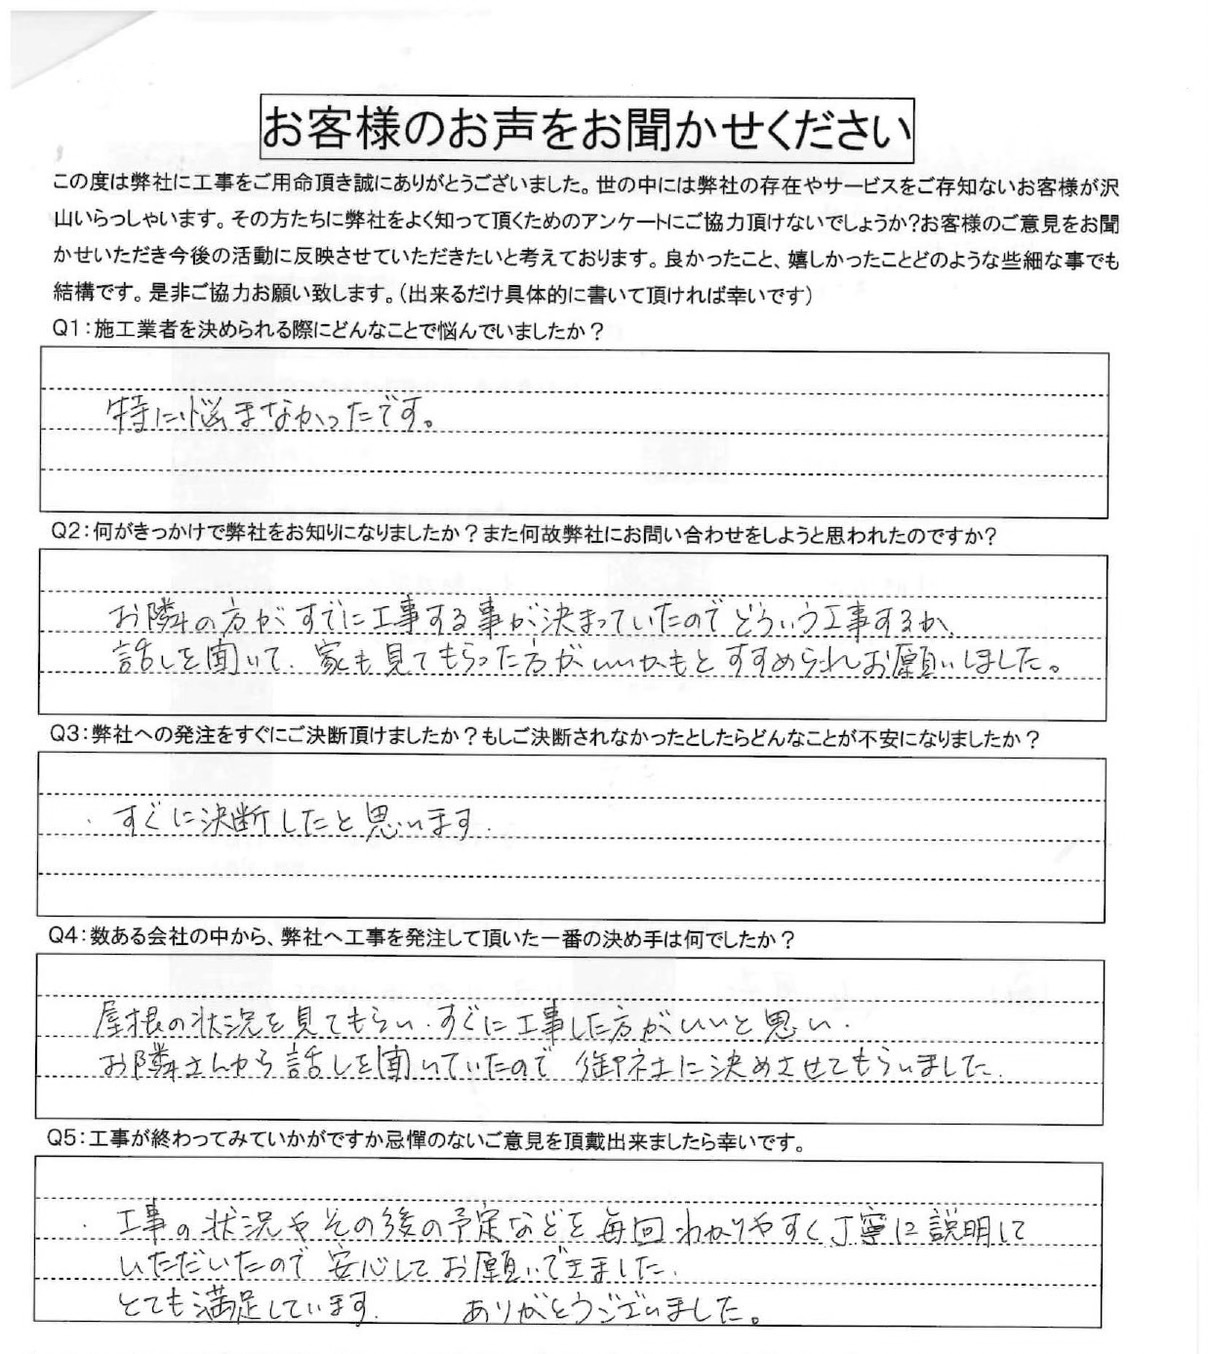 お客様のお声をお聞かせください
この度は弊社に工事をご用命頂き誠にありがとうございました。世の中には弊社の存在やサービスをご存知ないお客様が沢
山いらっしゃいます。その方たちに弊社をよく知って頂くためのアンケートにご協力頂けないでしょうか?お客様のご意見をお聞
かせいただき今後の活動に反映させていただきたいと考えております。良かったこと、嬉しかったことどのような些細な事でも
結構です。是非ご協力お願い致します。(出来るだけ具体的に書いて頂ければ幸いです)
Q1:施工業者を決められる際にどんなことで悩んでいましたか?
特に悩まなかったです。
Q2:何がきっかけで弊社をお知りになりましたか?また何故弊社にお問い合わせをしようと思われたのですか?
お隣の方がすでに工事する事が決まっていたのでどういう工事するか、
話しを聞いて、家も見てもらった方がいいかもとすすめられお願いしました。
Q3:弊社への発注をすぐにご決断頂けましたか?もしご決断されなかったとしたらどんなことが不安になりましたか?
・すぐに決断したと思います.
Q4:数ある会社の中から、弊社へ工事を発注して頂いた一番の決め手は何でしたか?
屋根の状況を見てもらい、すぐに工事した方がいいと思い、
お隣さんから話しを聞いていたので御社に決めさせてもらいました.
Q5:工事が終わってみていかがですか忌憚のないご意見を頂戴出来ましたら幸いです。
・工事の状況やその後の予定などを毎回わかりやすく丁寧に説明して
いただいたので安心してお願いできました.
とても満足しています. ありがとうございました。